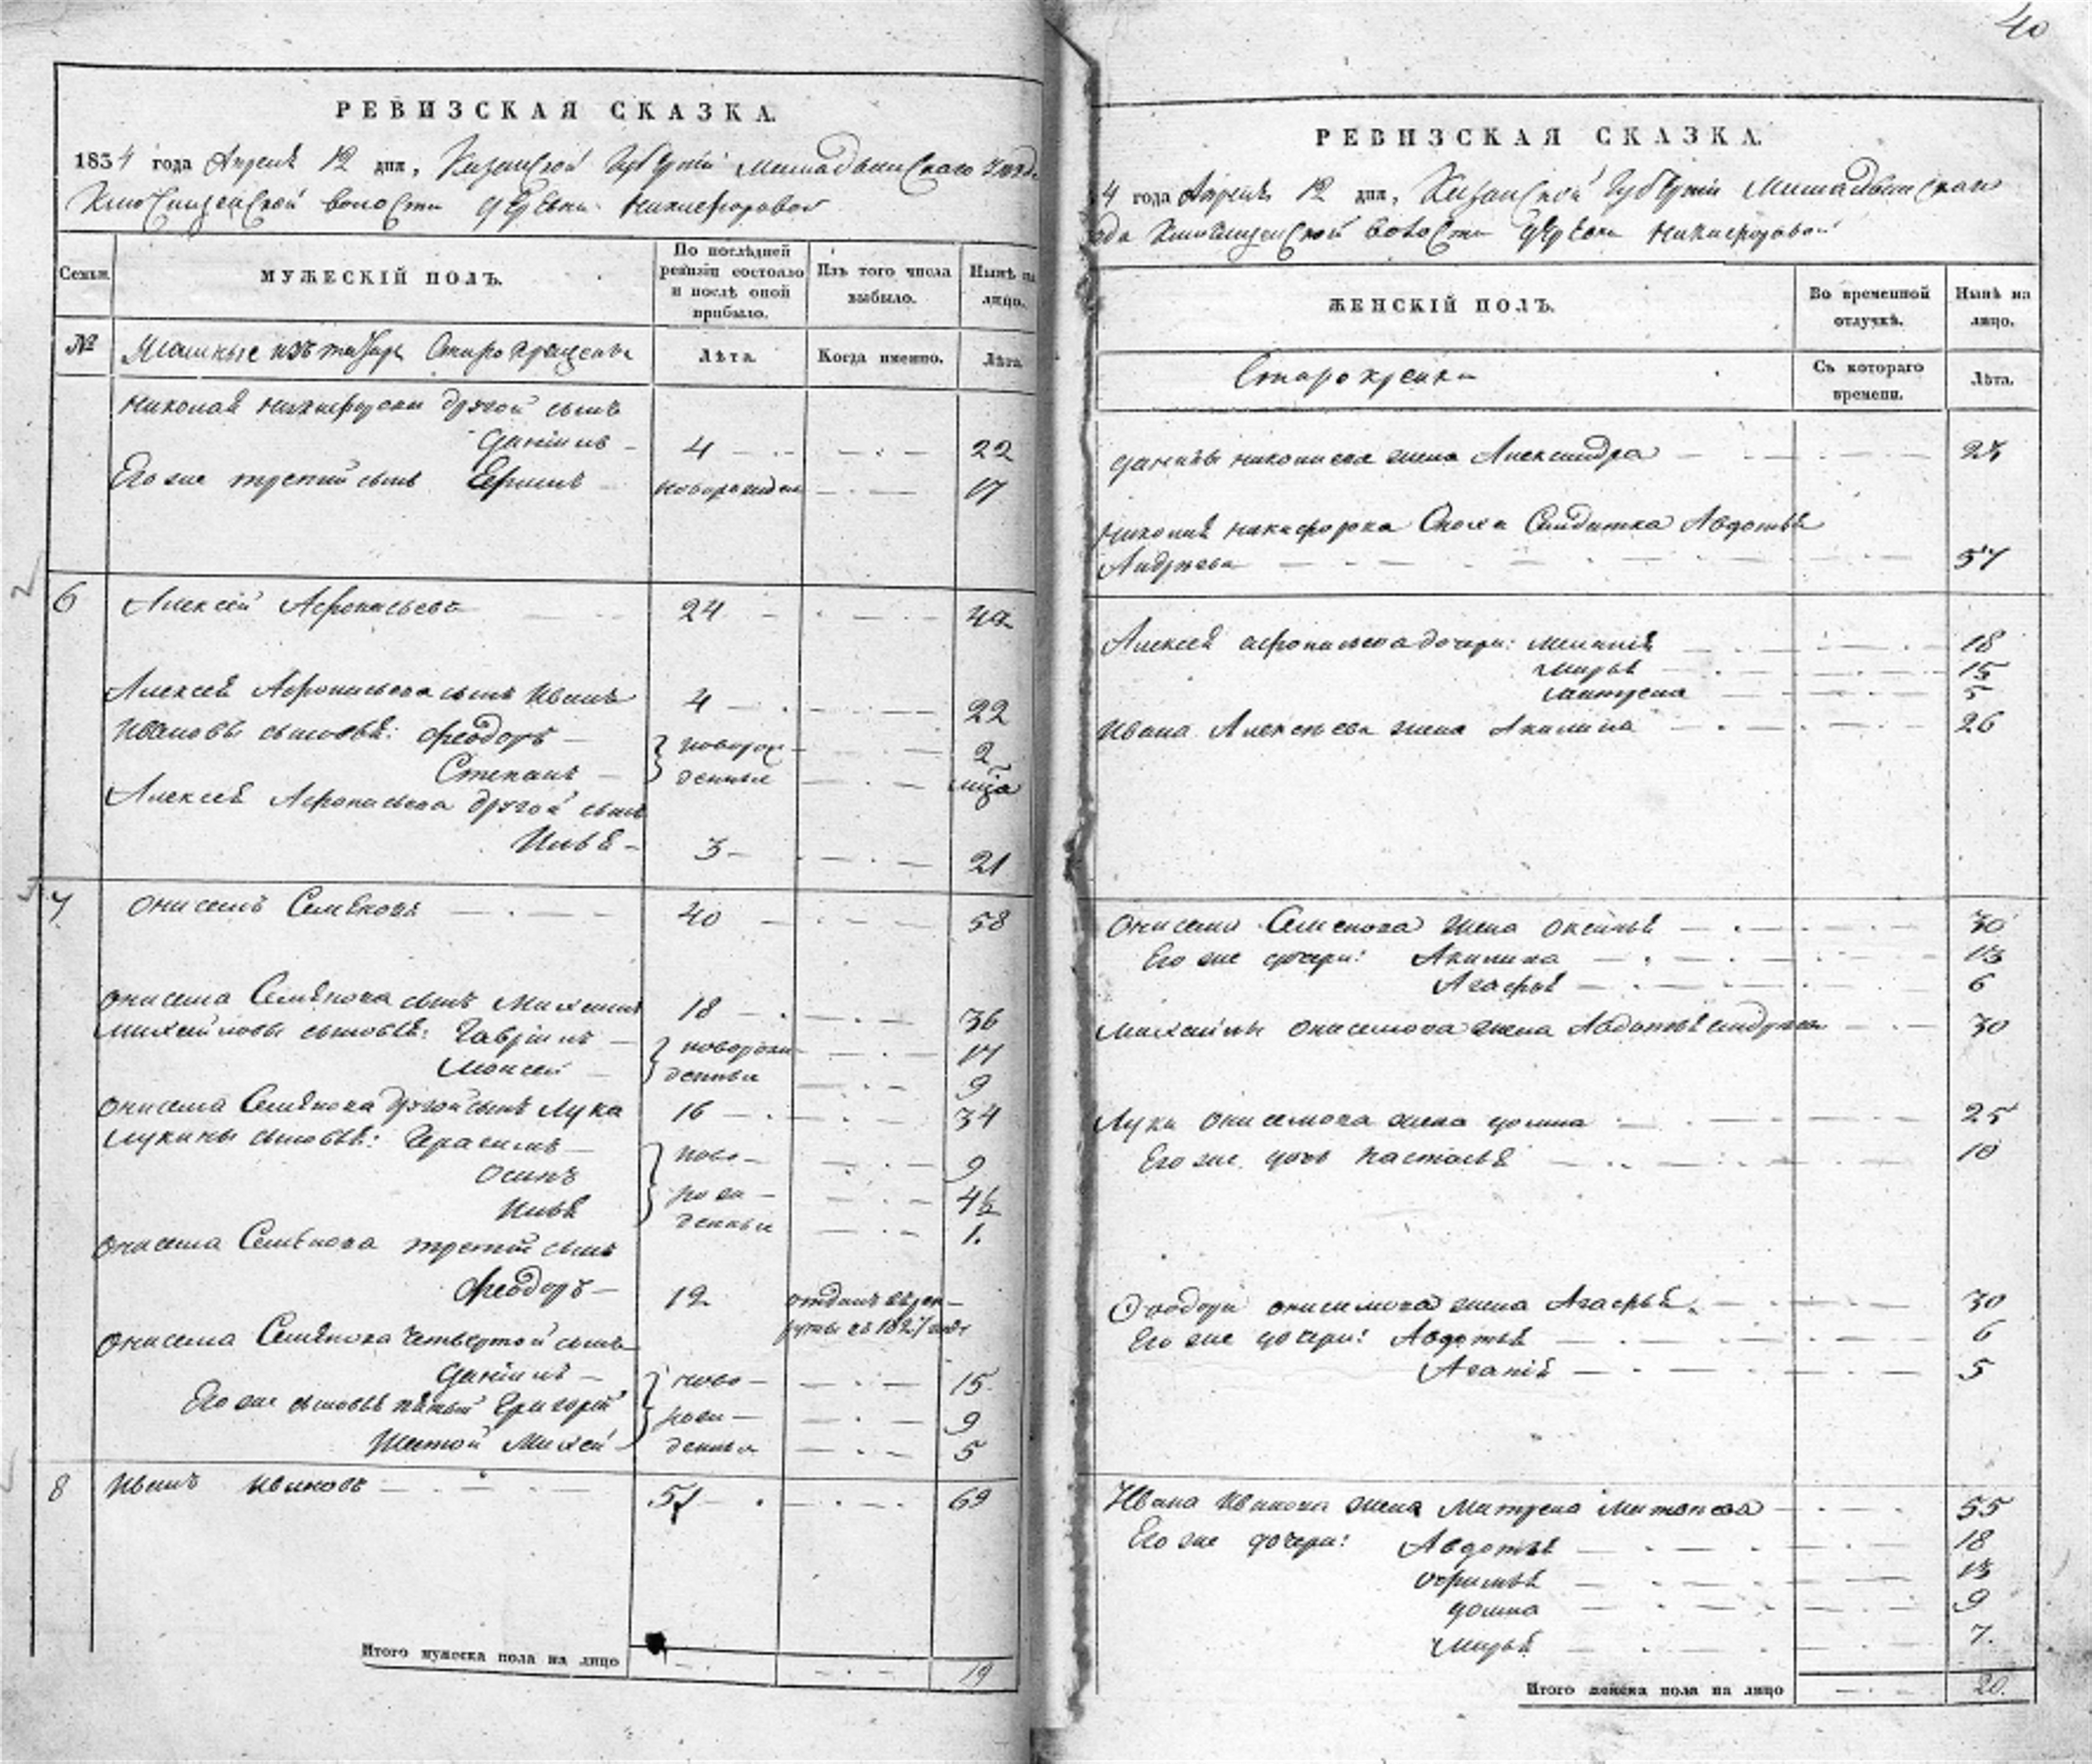 40
РЕВИЗСКАЯ СКАЗКА.
1834 года Апреля 12 дня, Казанской Губерніи Мамадышскаго уезда
волости деревни Никифоровой
Семьи.
МУЖЕСКІЙ ПОЛЪ.
По послѣдней ревизіи состояло и послѣ оной прибыло.
Изъ того числа выбыло.
Нынѣ на лицо.
№
Ясашные изъ татаръ Старокрещены
Лѣта.
Когда именно.
Лѣта.
Николая Никифорова другой сынъ
Даніилъ 4 22
Его же третій сынъ Ефимъ новорожден 17
6 Алексей Афонасьевъ 24 42
Алексея Афонасьева сынъ Иванъ 4 22
Ивановы сыновья: Феодоръ новорож- 2
Степанъ денные
Алексея Афонасьева другой сынъ
Илья 3 21
7 Онисимъ Семеновъ 40 58
Онисима Семенова сынъ Михаилъ 18 36
Михайловы сыновья: Гаврилъ новорож- 17
Моисей денные 9
Онисима Семенова другой сынъ Лука 16 34
Лукины сыновья: Герасимъ ново- 9
Осипъ рож- 4½
Илья денные 1.
Онисима Семенова третій сынъ
Феодоръ 12 отданъ въ рек-
руты въ 1827 годе
Онисима Семенова четвертой сынъ
Даніилъ ново- 15
Его же сыновья пятый Григорій рож- 9
Шестой Михей денные 5
8 Иванъ Ивановъ 51 69
Итого мужеска пола на лицо 19
РЕВИЗСКАЯ СКАЗКА.
4 года Апреля 12 дня, Казанской Губерніи Мамадышскаго
волости деревни Никифоровой
ЖЕНСКІЙ ПОЛЪ.
Во временной отлучкѣ.
Нынѣ на лицо.
Съ котораго времени.
Лѣта.
Данилы Николаева жена Александра
Николая Никифорова Сноха Солдатка Авдотья
Андреева 37
Алексея Афонасьева дочери: Меланія 18
Марья 15
Матрена 5
Ивана Алексеева жена Акилина 26
Онисима Семенова жена Оксинья 30
Его же дочери: Акилина 13
Агафья 6
Михайлы Онисимова жена Авдотья Андреева 30
Луки Онисимова жена Домна 25
Его же дочь Настасья 10
Феодора Онисимова жена Агафья 30
Его же дочери: Авдотья 6
Агапія 5
Ивана Иванова жена Матрена Матвеева 55
Его же дочери: Авдотья 18
Офимья 13
Домна 9
Марья 7.
Итого женска пола на лицо 20.